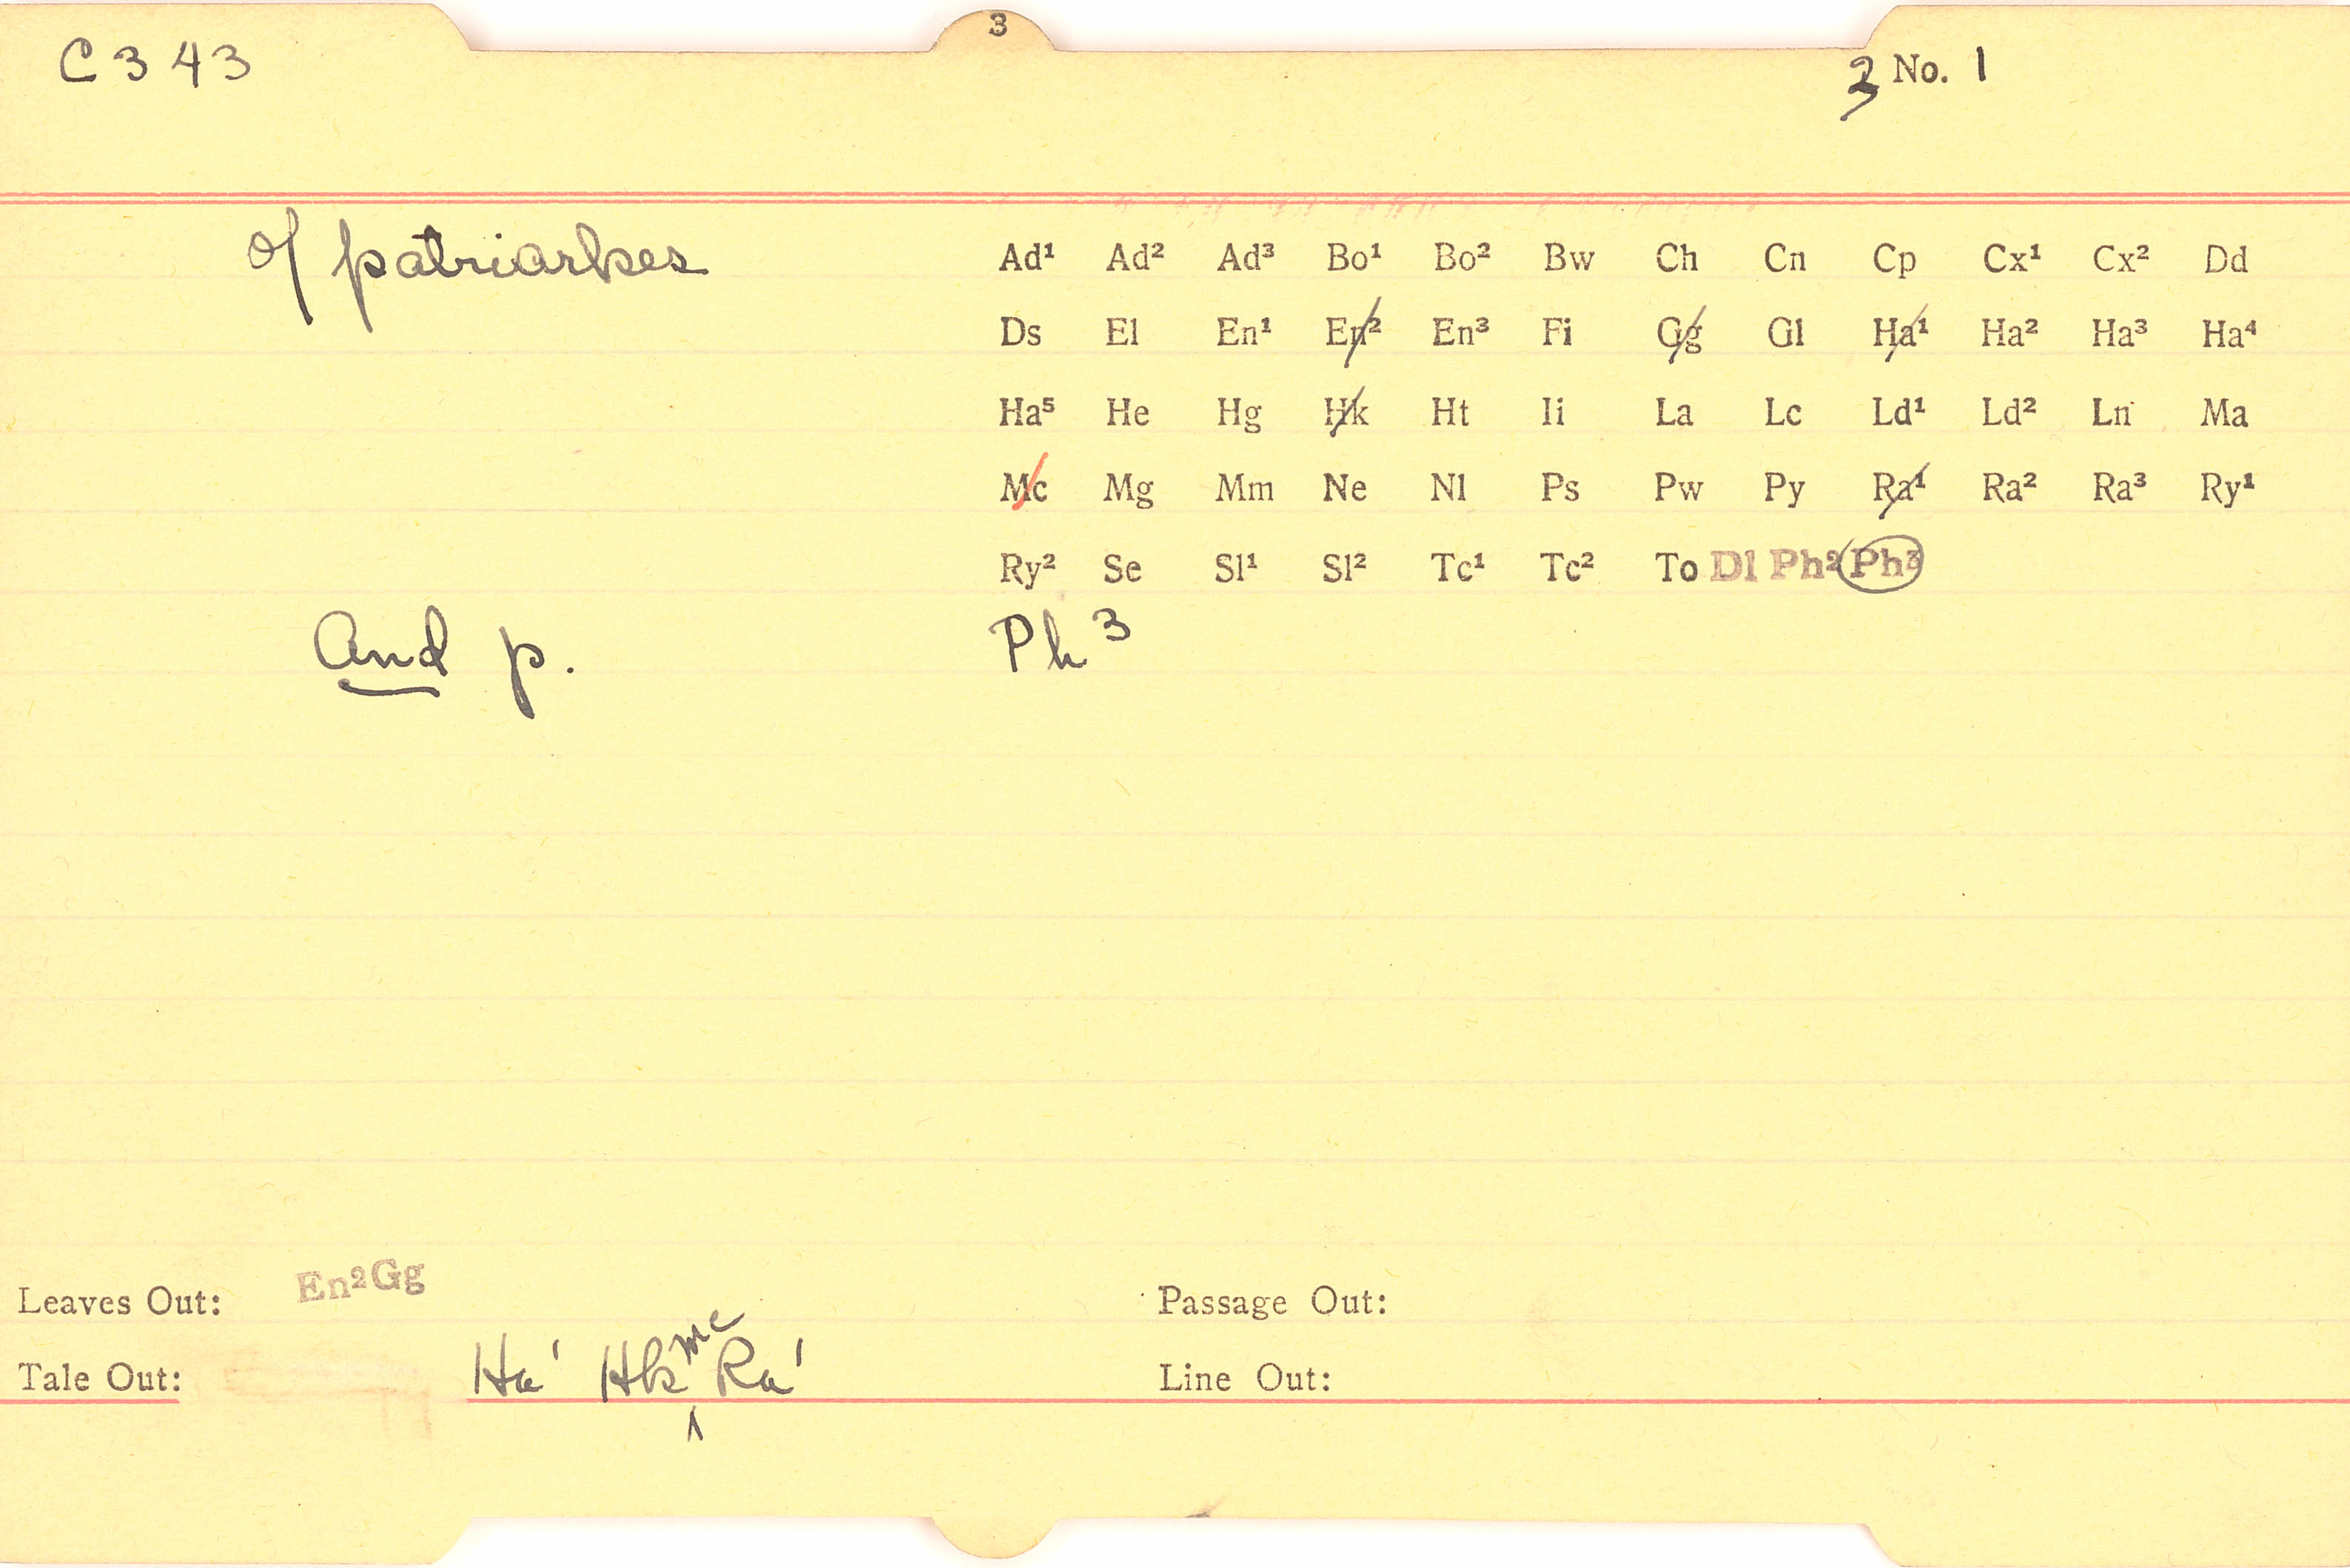 3
C 3 43
3 No. 1
of patriarkes
Ad¹ Ad² Ad³ Bo¹ Bo² Bw Ch Cn Cp Cx¹ Cx² Dd
Ds El En¹ En² En³ Fi Gg Gl Ha¹ Ha² Ha³ Ha⁴
Ha⁵ He Hg Hk Ht Ii La Lc Ld¹ Ld² Ln Ma
Mc Mg Mm Ne Nl Ps Pw Py Ra¹ Ra² Ra³ Ry¹
Ry² Se Sl¹ Sl² Tc¹ Tc² To Dl Ph² Ph³
And p. Ph³
Leaves Out: En²Gg Passage Out:
Tale Out: Ha¹ Hk Mc Ra¹ Line Out: